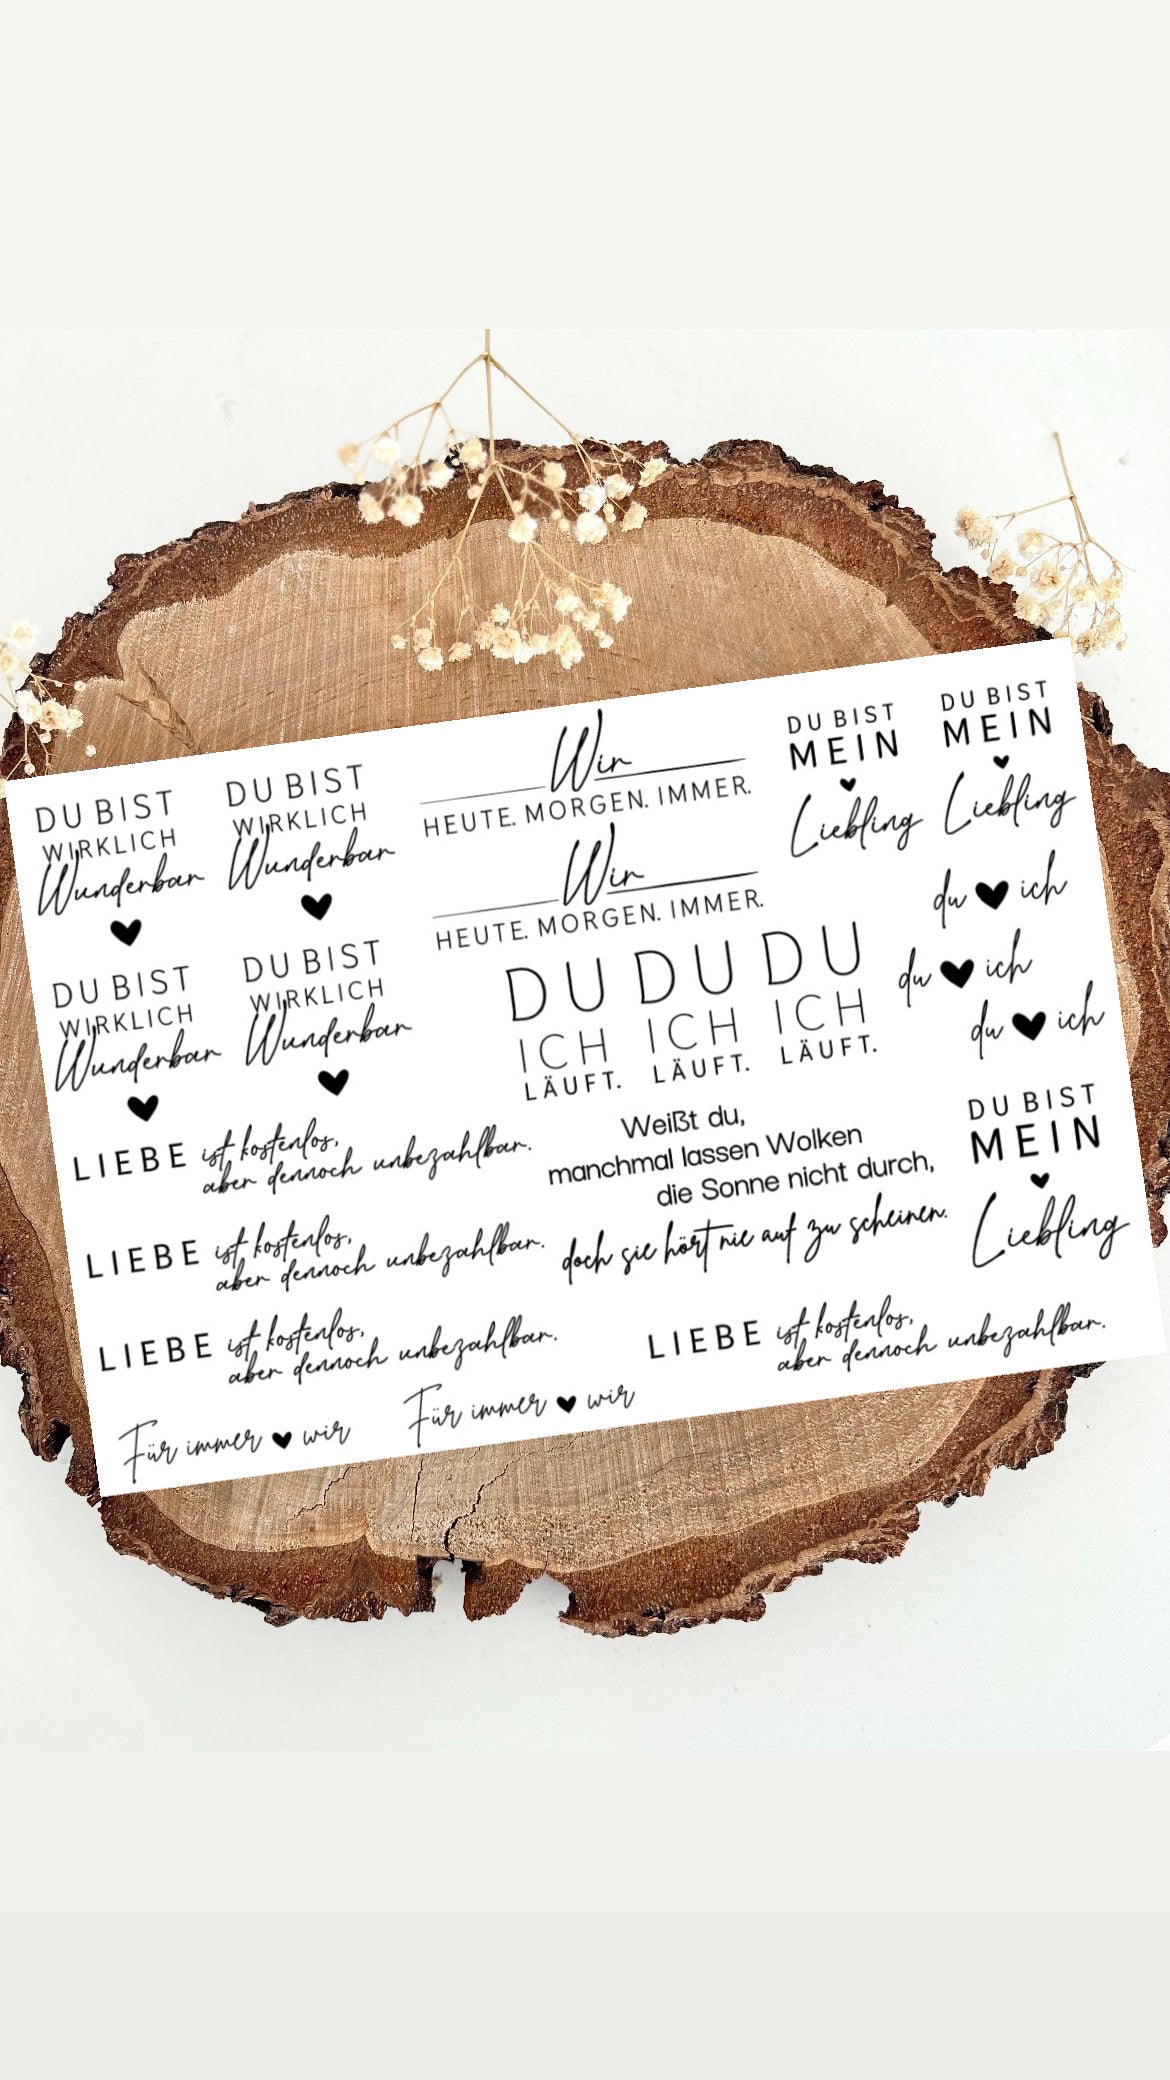 DU BIST
WIRKLICH
Wunderbar
DU BIST
WIRKLICH
Wunderbar
Wir
HEUTE. MORGEN. IMMER.
Wir
HEUTE. MORGEN. IMMER.
DU BIST
MEIN
Liebling
DU BIST
MEIN
Liebling
du ♥ ich
du ♥ ich
du ♥ ich
DU BIST
WIRKLICH
Wunderbar
DU BIST
WIRKLICH
Wunderbar
DU DU DU
ICH ICH ICH
LÄUFT. LÄUFT. LÄUFT.
LIEBE ist kostenlos,
aber dennoch unbezahlbar.
LIEBE ist kostenlos,
aber dennoch unbezahlbar.
LIEBE ist kostenlos,
aber dennoch unbezahlbar.
Weißt du,
manchmal lassen Wolken
die Sonne nicht durch,
doch sie hört nie auf zu scheinen.
DU BIST
MEIN
Liebling
LIEBE ist kostenlos,
aber dennoch unbezahlbar.
Für immer ♥ wir
Für immer ♥ wir